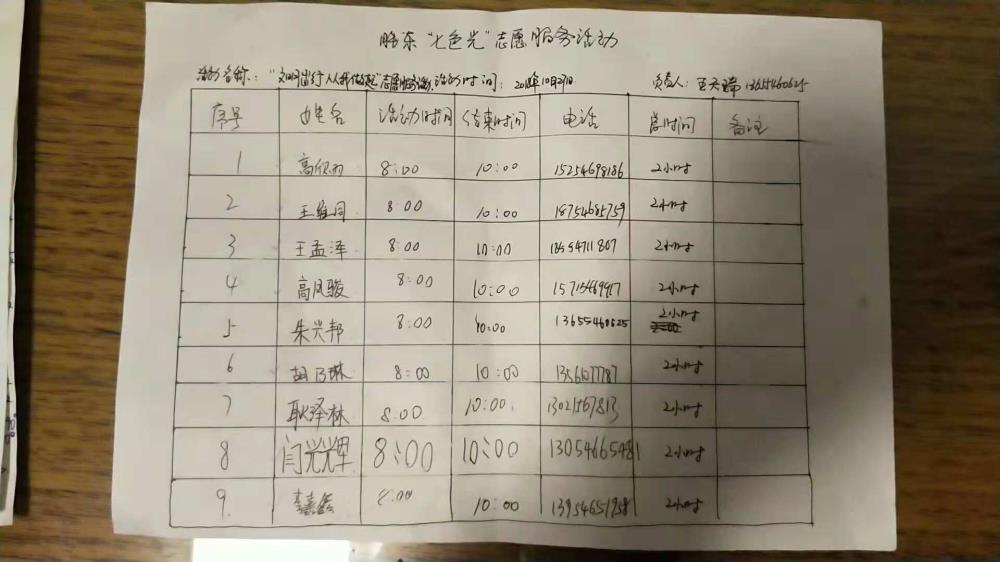 胜东“七色光”志愿服务活动
活动名称：“文明出行从我做起”志愿服务活动 活动时间：2018年10月27日 负责人：王天瑞 13655460625
序号 姓名 活动时间 结束时间 电话 总时间 备注
1 高欣羽 8:00 10:00 15254698186 2小时
2 王维同 8:00 10:00 18754685759 2小时
3 王孟泽 8:00 10:00 2小时
4 高风骏 8:00 10:00 15715469917 2小时
5 朱兴邦 8:00 10:00 13655460625 2小时
6 胡乃琳 8:00 10:00 2小时
7 耿泽林 8:00 10:00 13021567813 2小时
8 闫光辉 8:00 10:00 13054665481 2小时
9. 8:00 10:00 13954651958 2小时